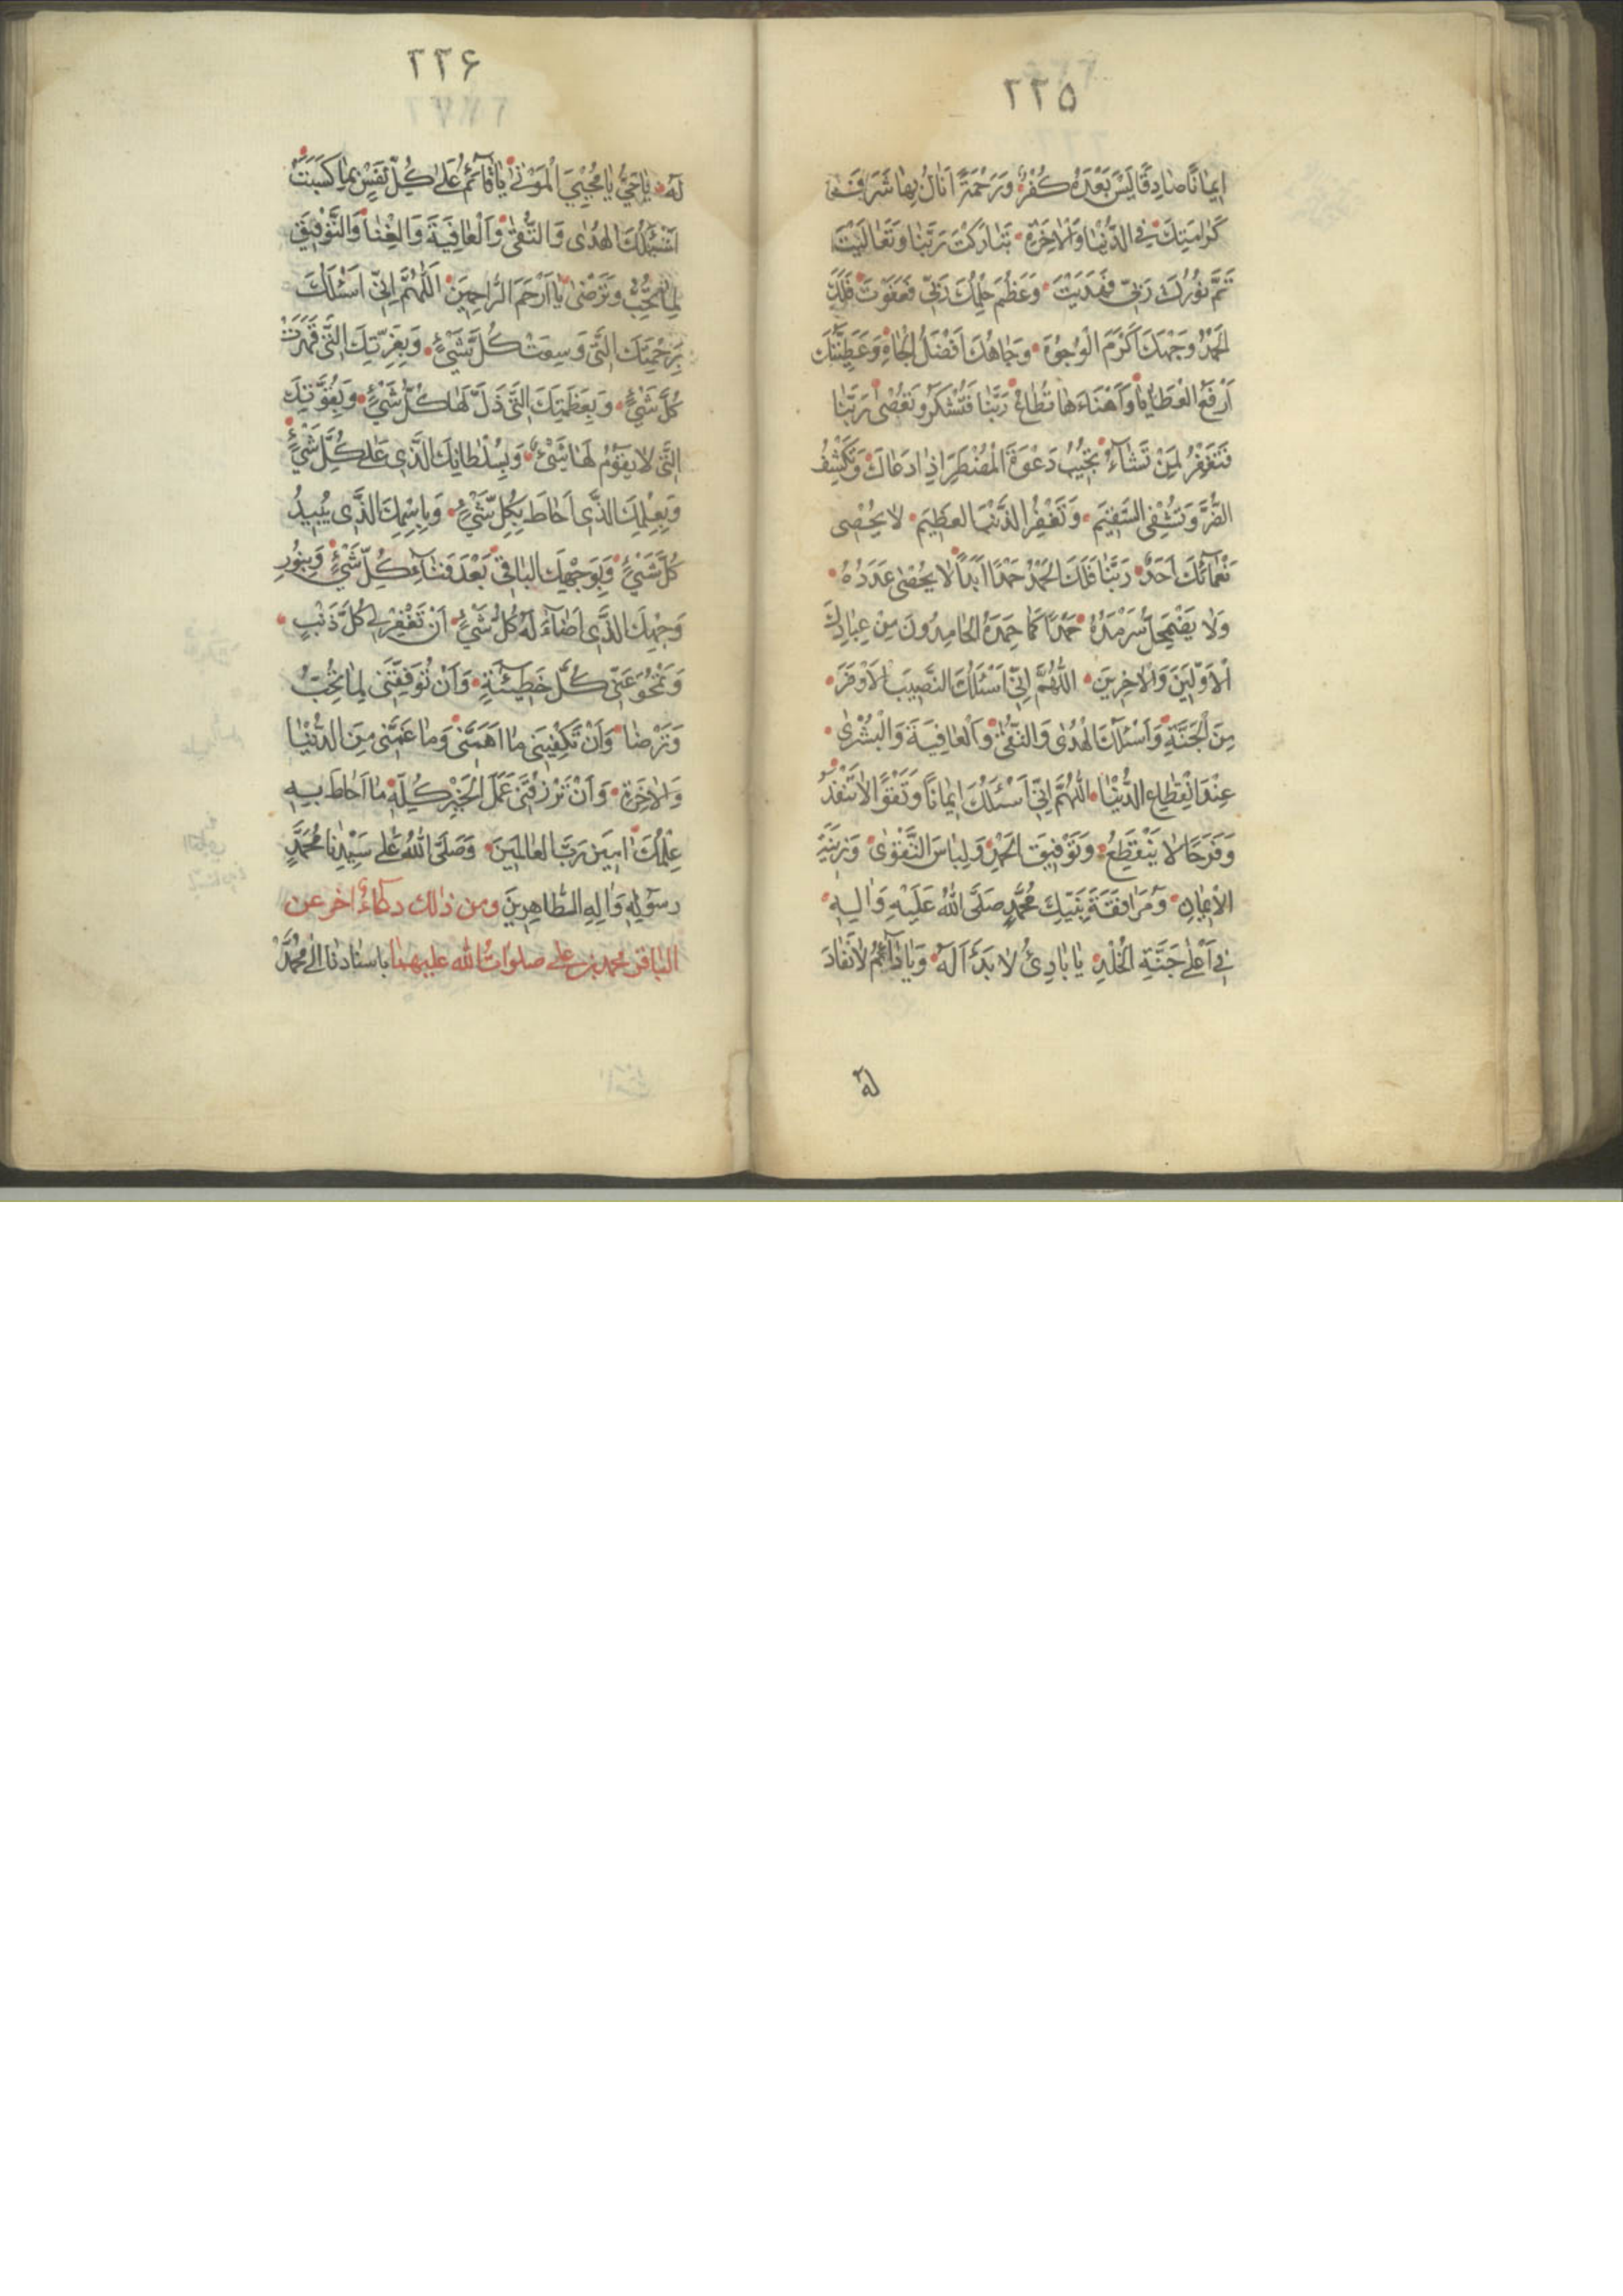 ٢٢٥
اِيمَانًا صَادِقًا لَيْسَ بَعْدَهُ كُفْرٌ وَرَحْمَةً اَنَالُ بِهَا شَرَفَ
كَرَامَتِكَ فِي الدُّنْيَا وَالْاٰخِرَةِ تَبَارَكْتَ رَبَّنَا وَتَعَالَيْتَ
تَمَّ نُورُكَ رَبِّي فَهَدَيْتَ وَعَظُمَ حِلْمُكَ رَبِّي فَعَفَوْتَ فَلَكَ
الْحَمْدُ وَجْهُكَ اَكْرَمُ الْوُجُوهِ وَجَاهُكَ اَفْضَلُ الْجَاهِ وَعَطِيَّتُكَ
اَرْفَعُ الْعَطَايَا وَاَهْنَاءَهَا تُطَاعُ رَبَّنَا فَتَشْكُرُ وَتُعْصٰى رَبَّنَا
فَتَغْفِرُ لِمَنْ تَشَاءُ تُجِيبُ دَعْوَةَ الْمُضْطَرِّ اِذَا دَعَاكَ وَتَكْشِفُ
الضُّرَّ وَتَشْفِي السَّقِيمَ وَتَغْفِرُ الذَّنْبَ الْعَظِيمَ لَا يُحْصِي
نَعْمَآئَكَ اَحَدٌ رَبَّنَا فَلَكَ الْحَمْدُ حَمْدًا اَبَدًا لَا يُحْصٰى عَدَدُهُ
وَلَا يَضْمَحِلُّ سَرْمَدُهُ حَمْدًا كَمَا حَمِدَهُ الْحَامِدُونَ مِنْ عِبَادِكَ
الْاَوَّلِينَ وَالْاٰخِرِينَ اَللّٰهُمَّ اِنِّي اَسْئَلُكَ النَّصِيبَ الْاَوْفَرَ
مِنَ الْجَنَّةِ وَاَسْئَلُكَ الْهُدٰى وَالتُّقٰى وَالْعَافِيَةَ وَالْبُشْرٰى
عِنْدَ انْقِطَاعِ الدُّنْيَا اَللّٰهُمَّ اِنِّي اَسْئَلُكَ اِيمَانًا وَتَقْوًا لَا تَنْفَدُ
وَفَرَحًا لَا يَنْقَطِعُ وَتَوْفِيقَ الْحَمْدِ وَلِبَاسَ التَّقْوٰى وَزِينَةَ
الْاِيمَانِ وَمُرَافَقَةَ نَبِيِّكَ مُحَمَّدٍ صَلَّى اللّٰهُ عَلَيْهِ وَاٰلِهِ
فِي اَعْلٰى جَنَّةِ الْخُلْدِ يَا بَادِئُ لَا بَدْءَ لَهُ وَيَا دَآئِمُ لَا نَفَادَ
له
٢٢۶
لَهُ يَا حَيُّ يَا مُحْيِيَ الْمَوْتٰى يَا قَآئِمُ عَلٰى كُلِّ نَفْسٍ بِمَا كَسَبَتْ
اَسْئَلُكَ الْهُدٰى وَالتُّقٰى وَالْعَافِيَةَ وَالْغِنَا وَالتَّوْفِيقَ
لِمَا تُحِبُّ وَتَرْضٰى يَا اَرْحَمَ الرَّاحِمِينَ اَللّٰهُمَّ اِنِّي اَسْئَلُكَ
بِرَحْمَتِكَ الَّتِي وَسِعَتْ كُلَّ شَيْءٍ وَبِعِزَّتِكَ الَّتِي قَهَرَتْ
كُلَّ شَيْءٍ وَبِعَظَمَتِكَ الَّتِي ذَلَّ لَهَا كُلُّ شَيْءٍ وَبِقُوَّتِكَ
الَّتِي لَا يَقُومُ لَهَا شَيْءٌ وَبِسُلْطَانِكَ الَّذِي عَلٰى كُلِّ شَيْءٍ
وَبِعِلْمِكَ الَّذِي اَحَاطَ بِكُلِّ شَيْءٍ وَبِاسْمِكَ الَّذِي يُبِيدُ
كُلَّ شَيْءٍ وَبِوَجْهِكَ الْبَاقِي بَعْدَ فَنَآءِ كُلِّ شَيْءٍ وَبِنُورِ
وَجْهِكَ الَّذِي اَضَآءَ لَهُ كُلُّ شَيْءٍ اَنْ تَغْفِرَ لِي كُلَّ ذَنْبٍ
وَتَمْحُوَ عَنِّي كُلَّ خَطِيئَةٍ وَاَنْ تُوَفِّقَنِي لِمَا تُحِبُّ
وَتَرْضَا وَاَنْ تَكْفِيَنِي مَا اَهَمَّنِي وَمَا غَمَّنِي مِنَ الدُّنْيَا
وَالْاٰخِرَةِ وَاَنْ تَرْزُقَنِي عَمَلَ الْخَيْرِ كُلِّهِ مَا اَحَاطَ بِهِ
عِلْمُكَ اٰمِينَ رَبَّ الْعَالَمِينَ وَصَلَّى اللّٰهُ عَلٰى سَيِّدِنَا مُحَمَّدٍ
رَسُولِهِ وَاٰلِهِ الطَّاهِرِينَ ومن ذلك دعاء اخر عن
الباقر محمد بن علي صلوات الله عليهما باسنادنا الى محمد